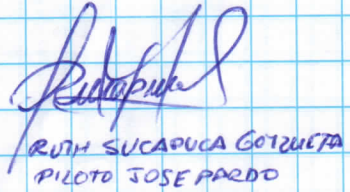 RUTH SUCAPUCA GOYZUETA
PILOTO JOSE PARDO